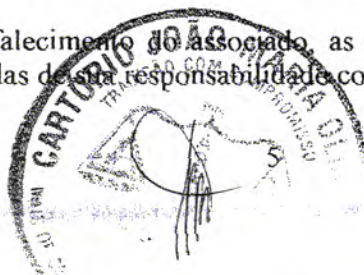 falecimento do associado, as
las de sua responsabilidade co
CARTÓRIO JOÃO MARIA
TRADIÇÃO COM COMPROMISSO
5